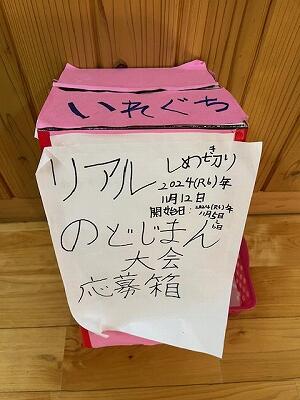 いれぐち
リアル
しめせ切り
き
2024(R6)年
11月12日
開始日:2024(R6)年
11月5日
のどじまん
大会
応募箱